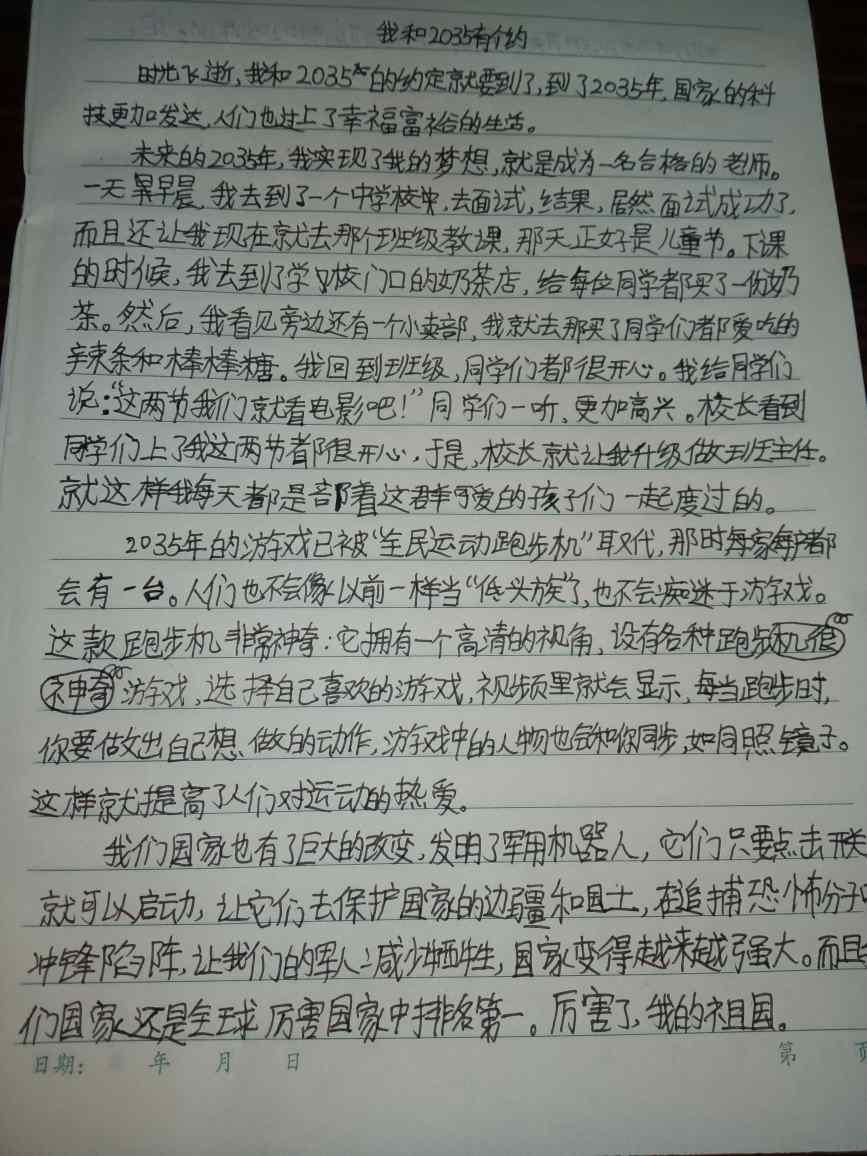 我和2035有个约
时光飞逝,我和2035年的约定就要到了,到了2035年,国家的科
技更加发达,人们也过上了幸福富裕的生活。
未来的2035年,我实现了我的梦想,就是成为一名合格的老师。
一天早晨,我去到了一个中学校,去面试,结果,居然面试成功了,
而且还让我现在就去那个班级教课,那天正好是儿童节。下课
的时候,我去到了学校门口的奶茶店,给每位同学都买了一份奶
茶。然后,我看见旁边还有一个小卖部,我就去那买了同学们都爱吃的
辣条和棒棒糖。我回到班级,同学们都很开心。我给同学们
说:“这两节我们就看电影吧!”同学们一听,更加高兴。校长看到
同学们上了我这两节都很开心,于是,校长就让我升级做班主任。
就这样我每天都是陪着这群可爱的孩子们一起度过的。
2035年的游戏已被“全民运动跑步机”取代,那时每家每户都
会有一台。人们也不会像以前一样当“低头族”了,也不会痴迷于游戏。
这款跑步机非常神奇:它拥有一个高清的视角,设有各种跑步机很
神奇游戏,选择自己喜欢的游戏,视频里就会显示,每当跑步时,
你要做出自己想做的动作,游戏中的人物也会和你同步,如同照镜子。
这样就提高了人们对运动的热爱。
我们国家也有了巨大的改变,发明了军用机器人,它们只要点击开关
就可以启动,让它们去保护国家的边疆和国土,在追捕恐怖分子
冲锋陷阵,让我们的军人减少牺牲,国家变得越来越强大。而且
们国家还是全球厉害国家中排名第一。厉害了,我的祖国。
日期: 年 月 日 第 页